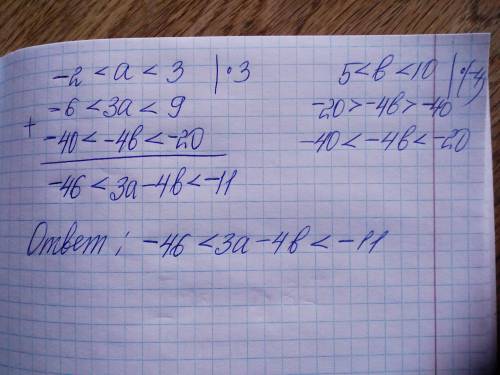 -2 < a < 3 | · 3
-6 < 3a < 9
+
-40 < -4в < -20
-46 < 3a - 4в < -11
5 < в < 10 | · (-4)
-20 > -4в > -40
-40 < -4в < -20
Ответ: -46 < 3a - 4в < -11